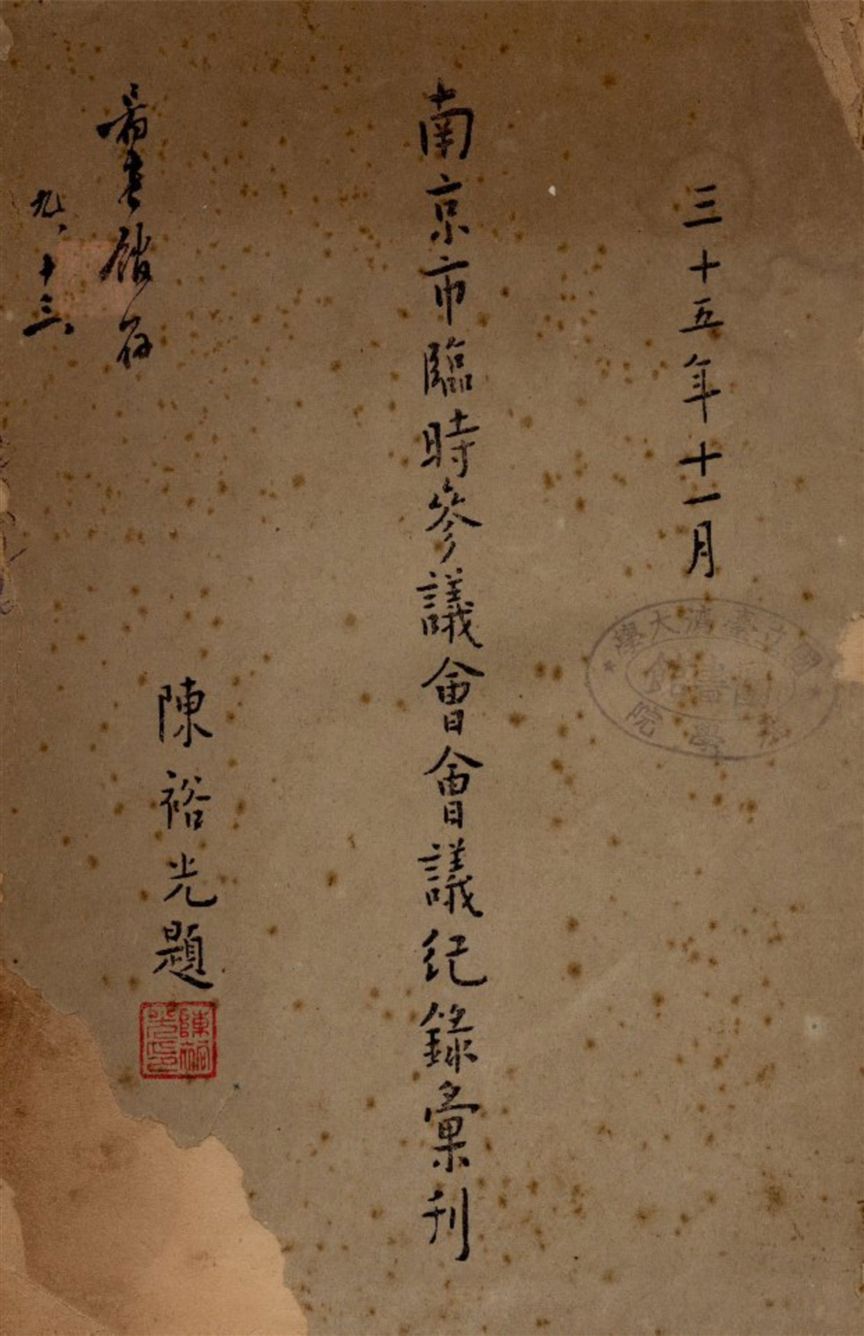 三十五年十一月
南京市臨時參議會會議紀錄彙刊
陳裕光題
陳裕光印
國立臺灣大學
法學院
圖書館
書館存
九、十三、